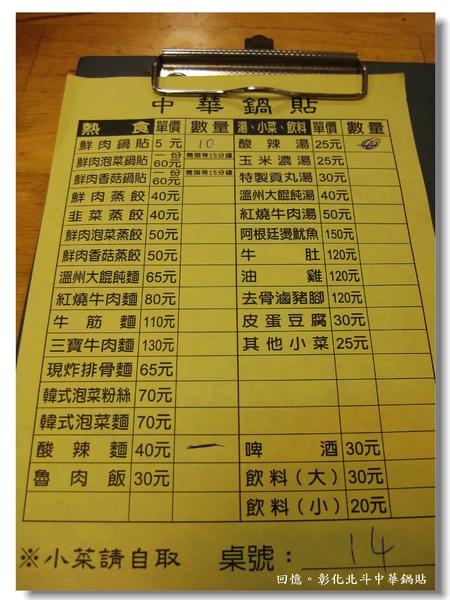 中華鍋貼
熱食 單價 數量 湯、小菜、飲料 單價 數量
鮮肉鍋貼 5元 10 酸辣湯 25元
鮮肉泡菜鍋貼 一份60元 需預等15分鐘 玉米濃湯 25元
鮮肉香菇鍋貼 一份60元 需預等15分鐘 特製貢丸湯 30元
鮮肉蒸餃 40元 溫州大餛飩湯 40元
韭菜蒸餃 40元 紅燒牛肉湯 50元
鮮肉泡菜蒸餃 50元 阿根廷燙魷魚 150元
鮮肉香菇蒸餃 50元 牛肚 120元
溫州大餛飩麵 65元 油雞 120元
紅燒牛肉麵 80元 去骨滷豬腳 120元
牛筋麵 110元 皮蛋豆腐 30元
三寶牛肉麵 130元 其他小菜 25元
現炸排骨麵 65元
韓式泡菜粉絲 70元
韓式泡菜麵 70元
酸辣麵 40元 一 啤酒 30元
魯肉飯 30元 飲料(大) 30元
飲料(小) 20元
※小菜請自取 桌號: 14
回憶。彰化北斗中華鍋貼